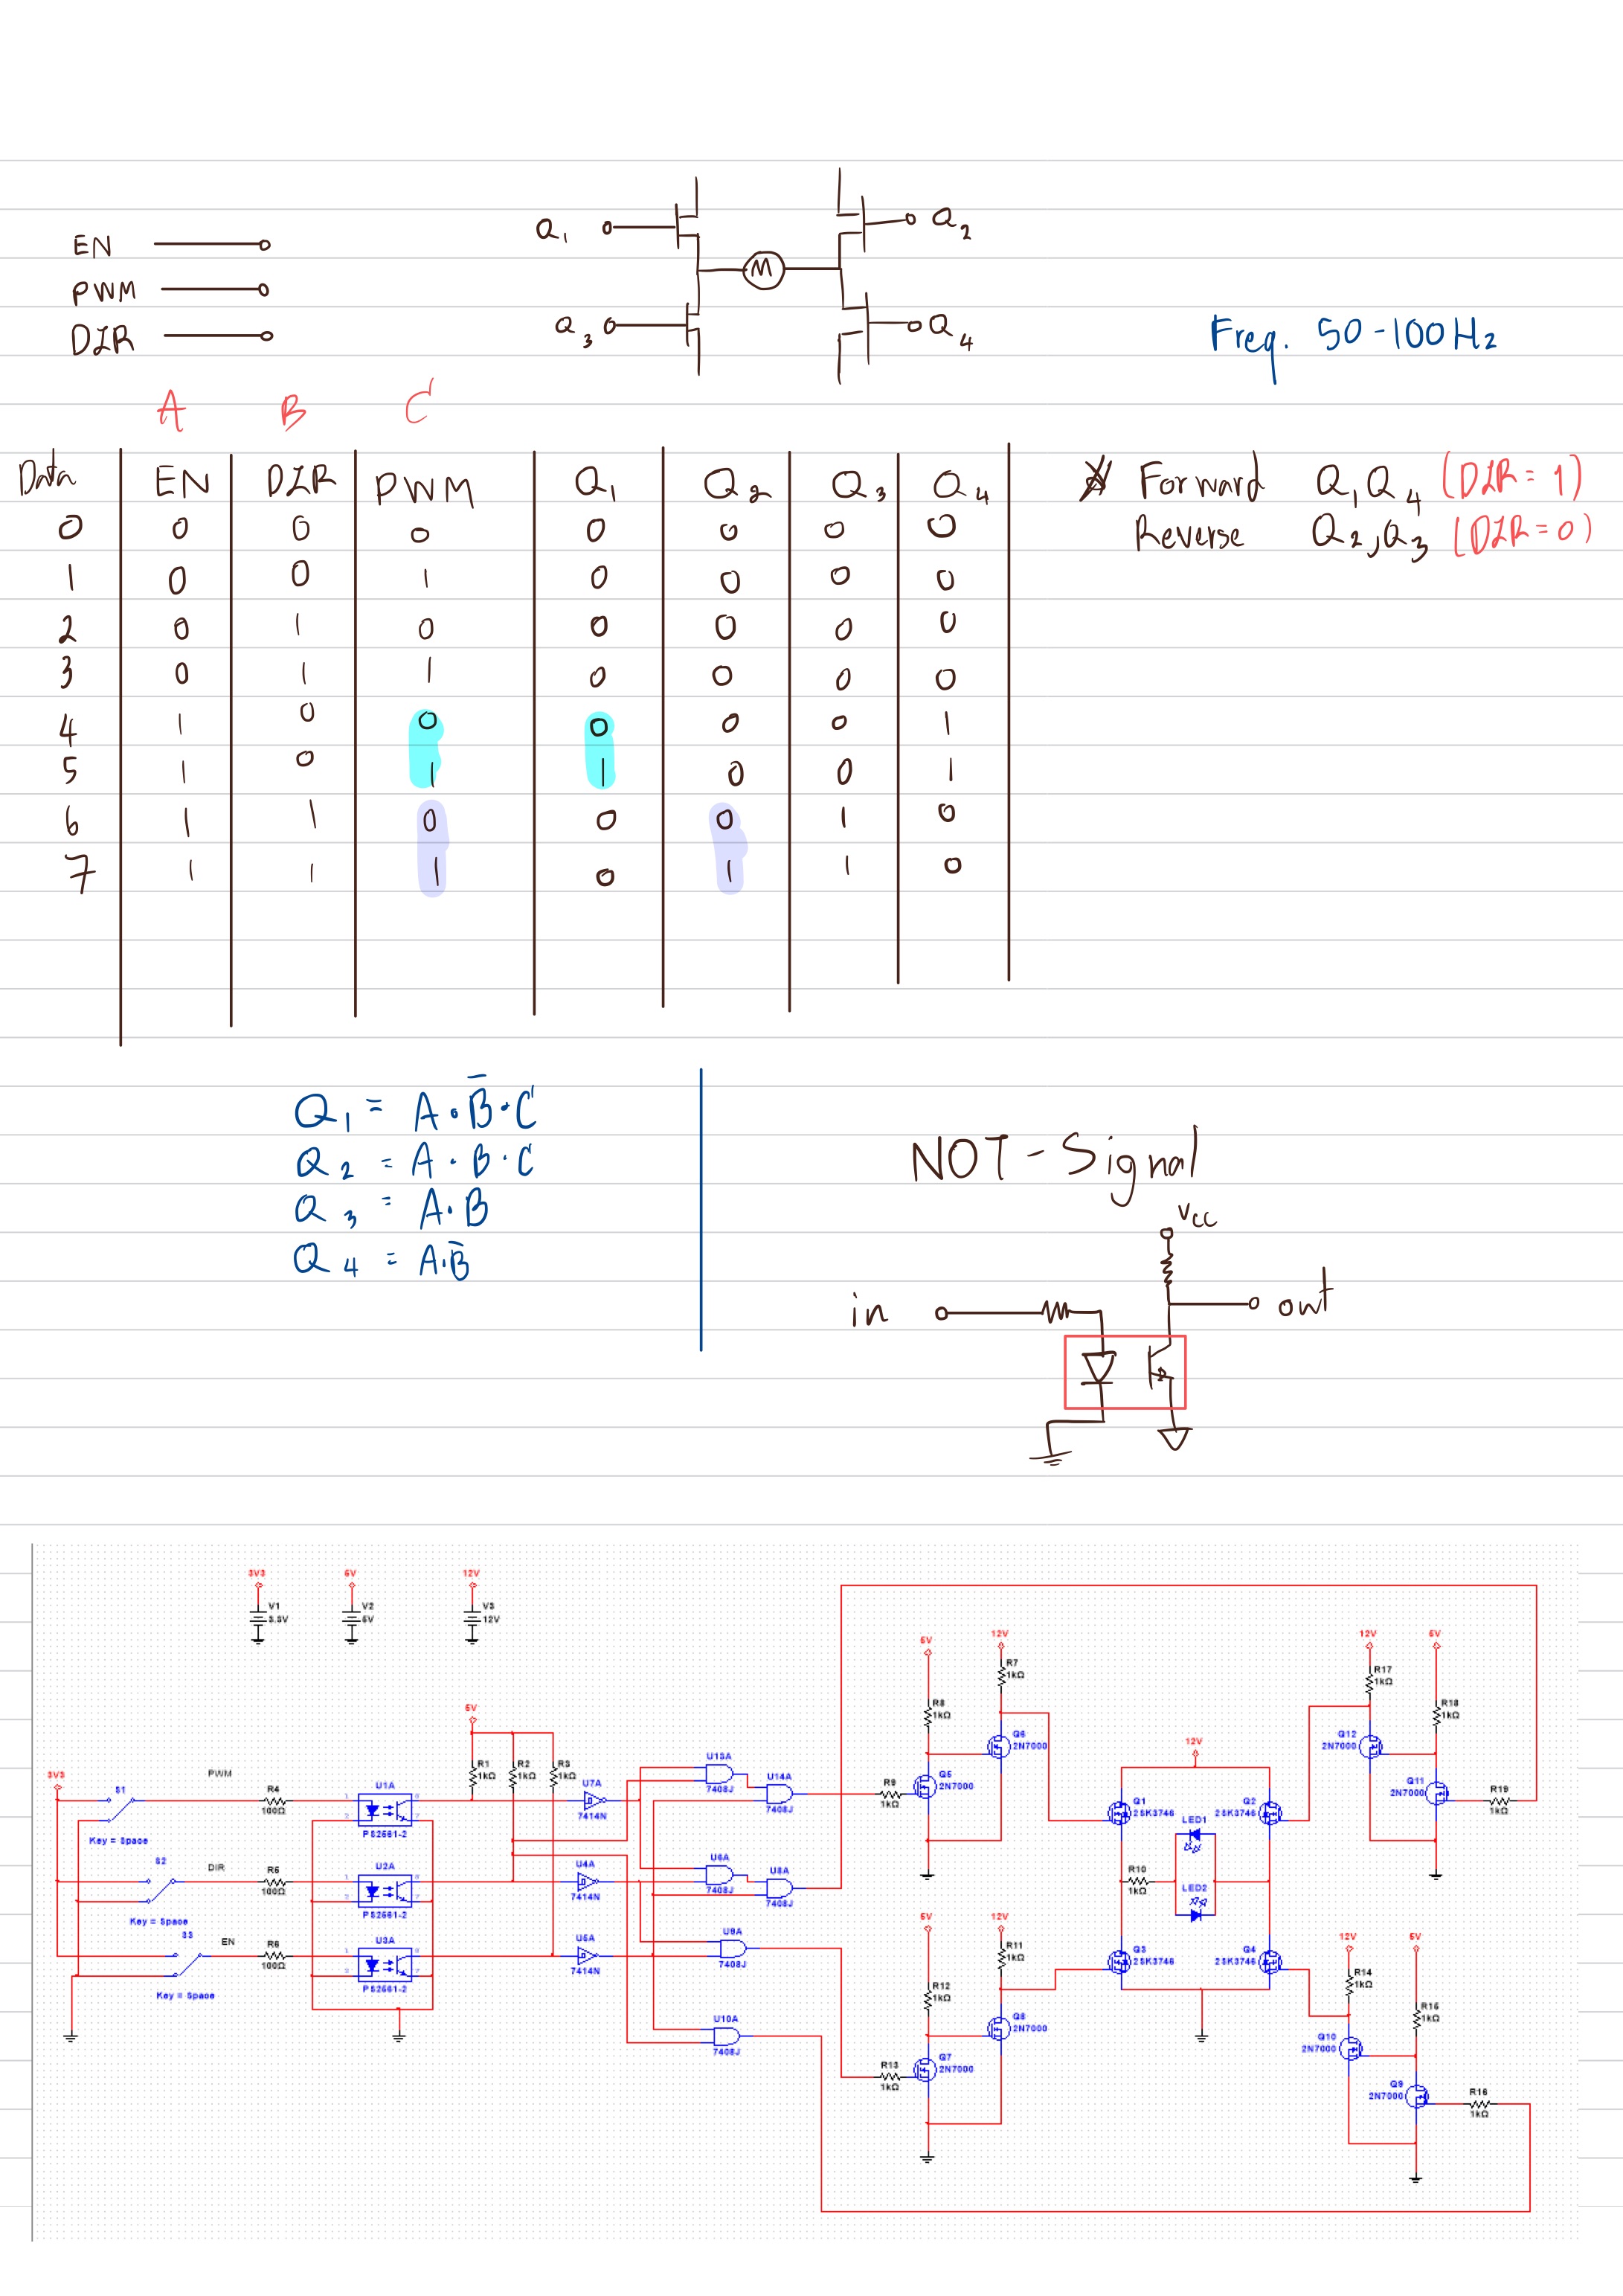 EN
PWM
DIR
Q1
Q2
M
Q3
Q4
Freq. 50-100Hz
A B C
Data EN DIR PWM Q1 Q2 Q3 Q4
0 0 0 0 0 0 0 0
1 0 0 1 0 0 0 0
2 0 1 0 0 0 0 0
3 0 1 1 0 0 0 0
4 1 0 0 0 0 0 1
5 1 0 1 1 0 0 1
6 1 1 0 0 0 1 0
7 1 1 1 0 1 1 0
Forward Q1Q4 (DIR = 1)
Reverse Q2,Q3 (DIR = 0)
Q1 = A·B̅·C
Q2 = A·B·C
Q3 = A·B
Q4 = A·B̅
NOT-Signal
Vcc
in
out
3V3
V1
3.3V
5V
V2
5V
12V
V3
12V
3V3
S1
Key = Space
PWM
R4
100Ω
U1A
PS2561-2
S2
Key = Space
DIR
R5
100Ω
U2A
PS2561-2
S3
Key = Space
EN
R6
100Ω
U3A
PS2561-2
5V
R1
1kΩ
R2
1kΩ
R3
1kΩ
U7A
7414N
U4A
7414N
U5A
7414N
U13A
7408J
U14A
7408J
U6A
7408J
U8A
7408J
U9A
7408J
U10A
7408J
5V
R8
1kΩ
12V
R7
1kΩ
Q6
2N7000
Q5
2N7000
R9
1kΩ
5V
R12
1kΩ
12V
R11
1kΩ
Q8
2N7000
Q7
2N7000
R13
1kΩ
12V
Q1
2SK3746
Q2
2SK3746
LED1
R10
1kΩ
LED2
Q3
2SK3746
Q4
2SK3746
12V
R17
1kΩ
5V
R18
1kΩ
Q12
2N7000
Q11
2N7000
R19
1kΩ
12V
R14
1kΩ
5V
R15
1kΩ
Q10
2N7000
Q9
2N7000
R16
1kΩ